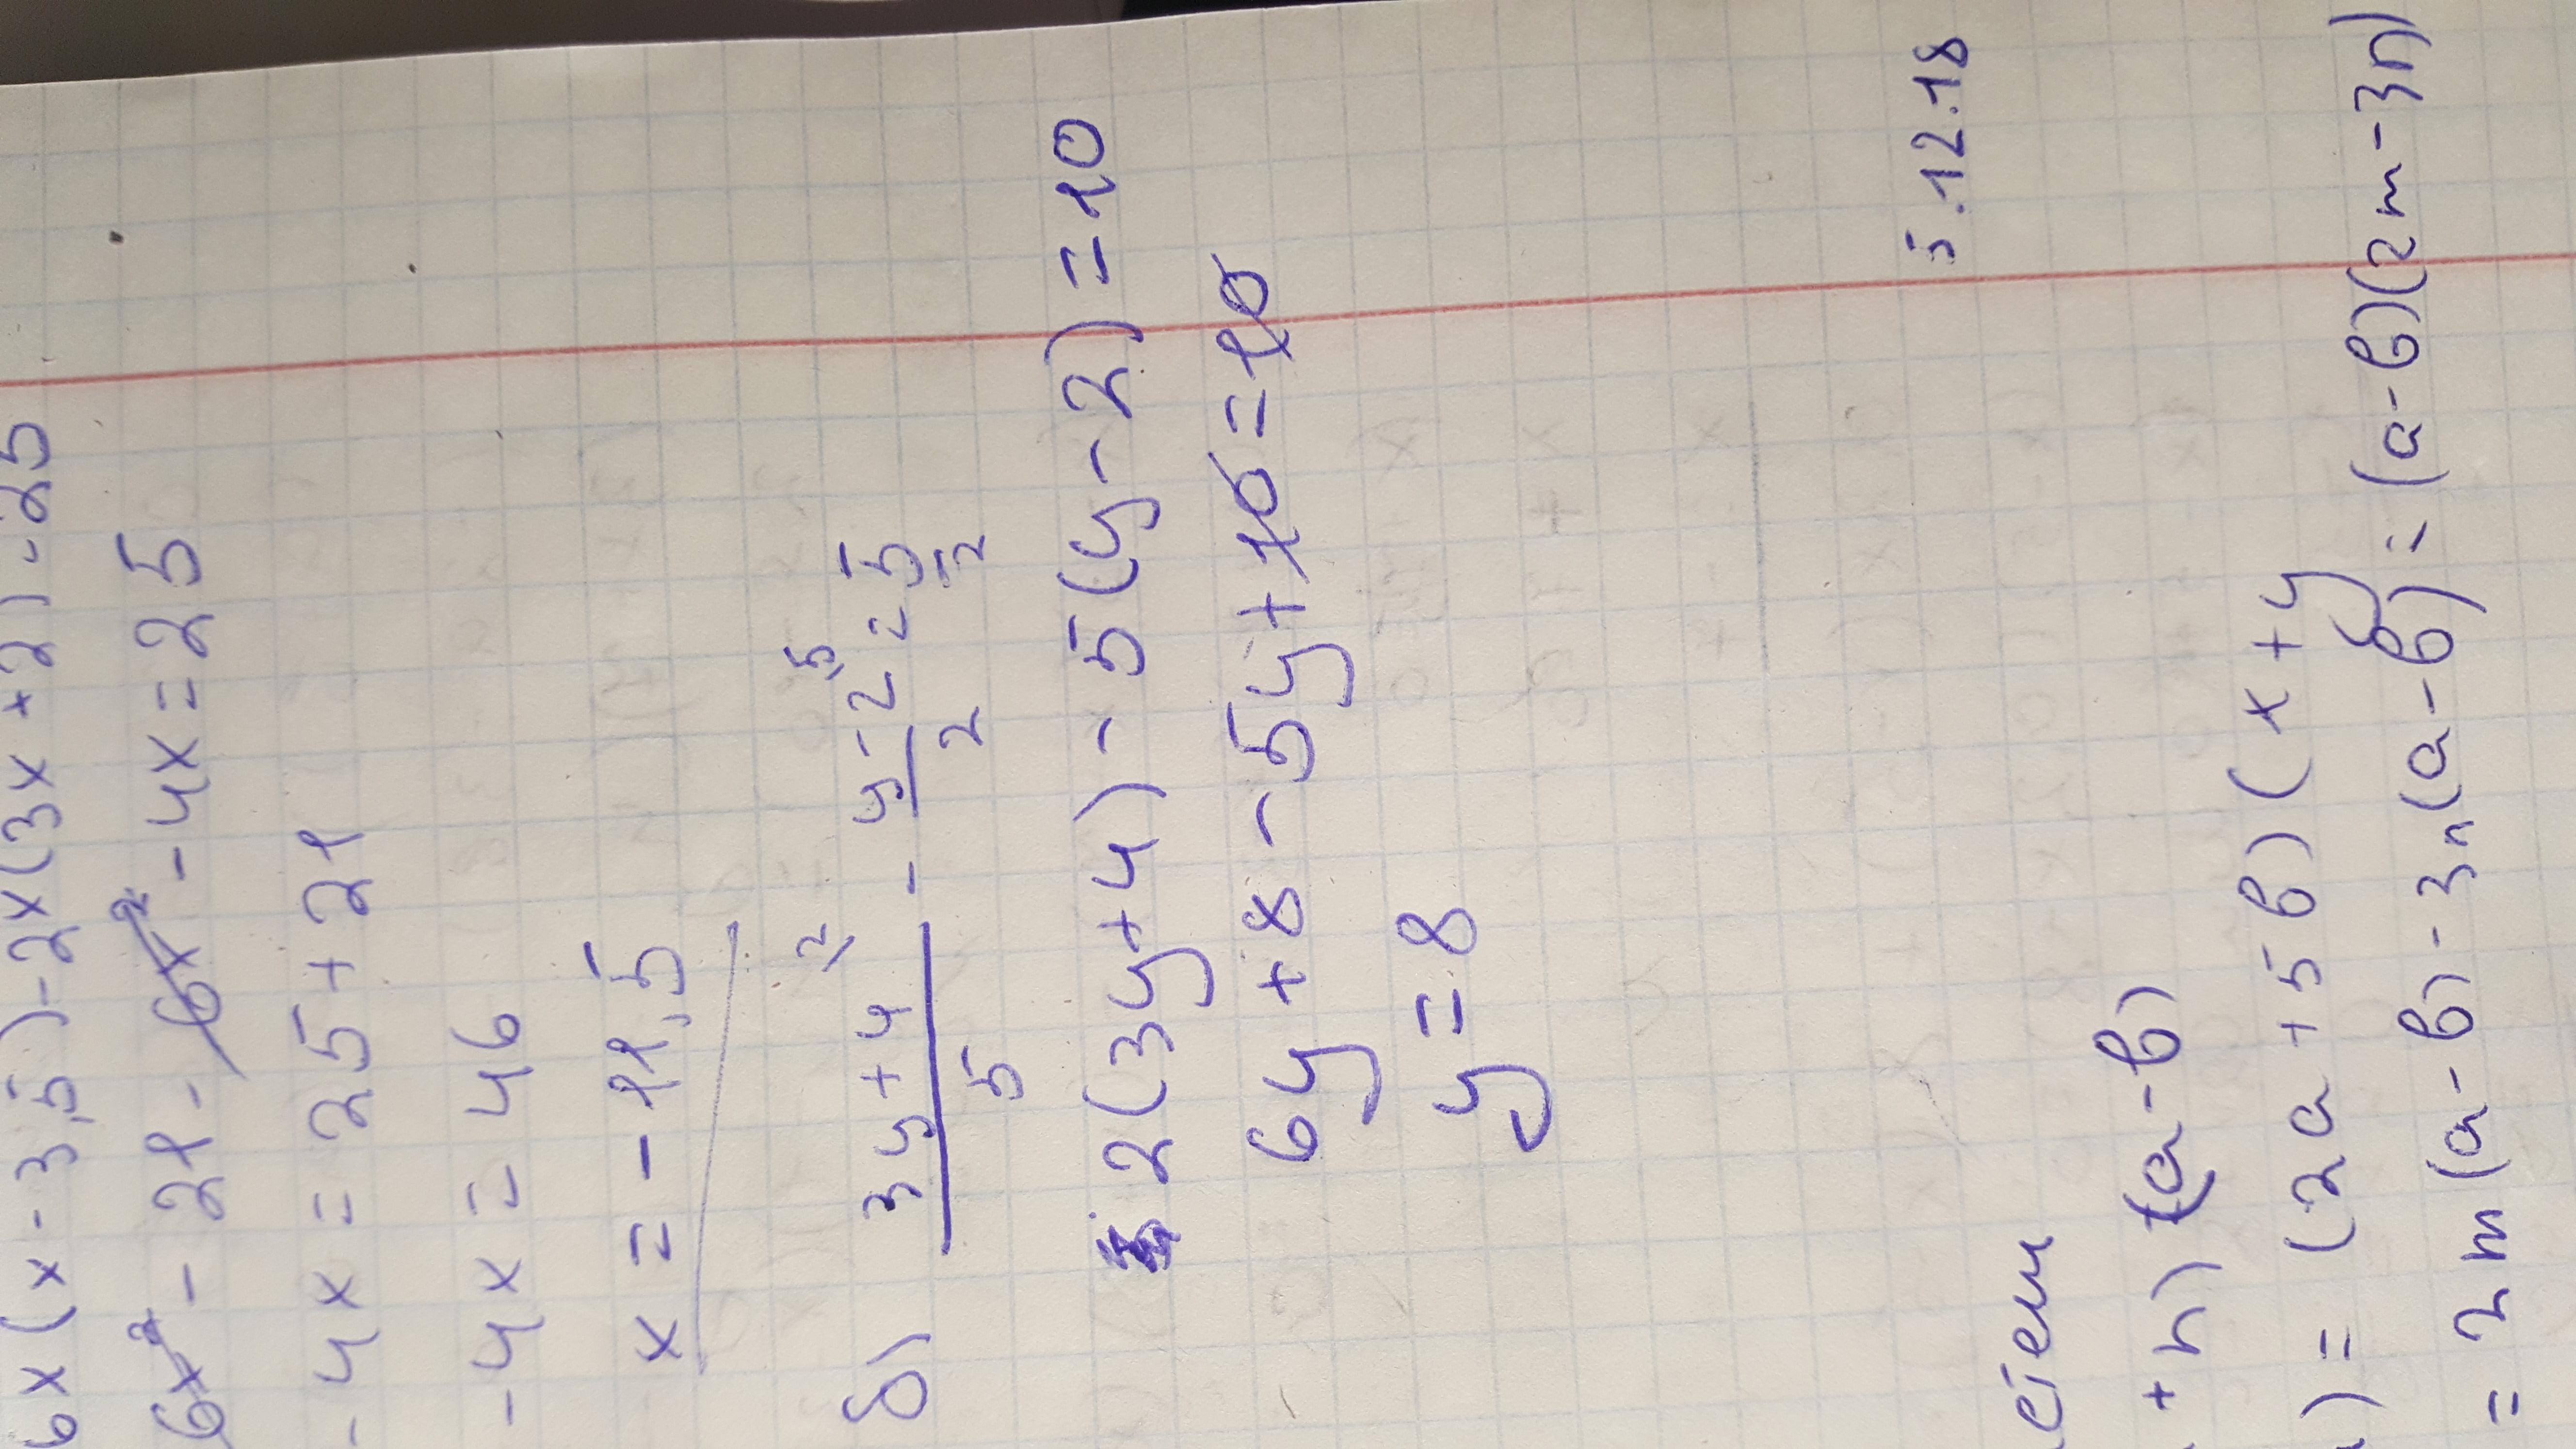 6x(x-3,5)-2x(3x+2)=25
6x²-21-6x²-4x=25
-4x=25+21
-4x=46
x=-11,5
б) \frac{3y+4}{5}^{\2} - \frac{y-2}{2}^{\5} = \frac{5}{2}
2(3y+4)-5(y-2)=10
6y+8-5y+10=10
y=8
5.12.18
+n)(a-b)
)=(2a+5b)(x+y)
=2m(a-b)-3n(a-b)=(a-b)(2m-3n)